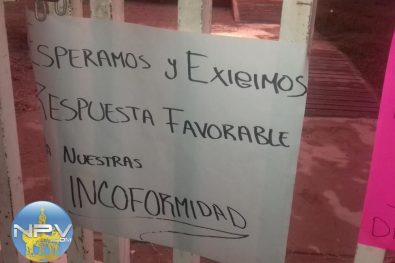 ESPERAMOS Y EXIGIMOS
RESPUESTA FAVORABLE
A NUESTRAS
INCOFORMIDAD
NPV